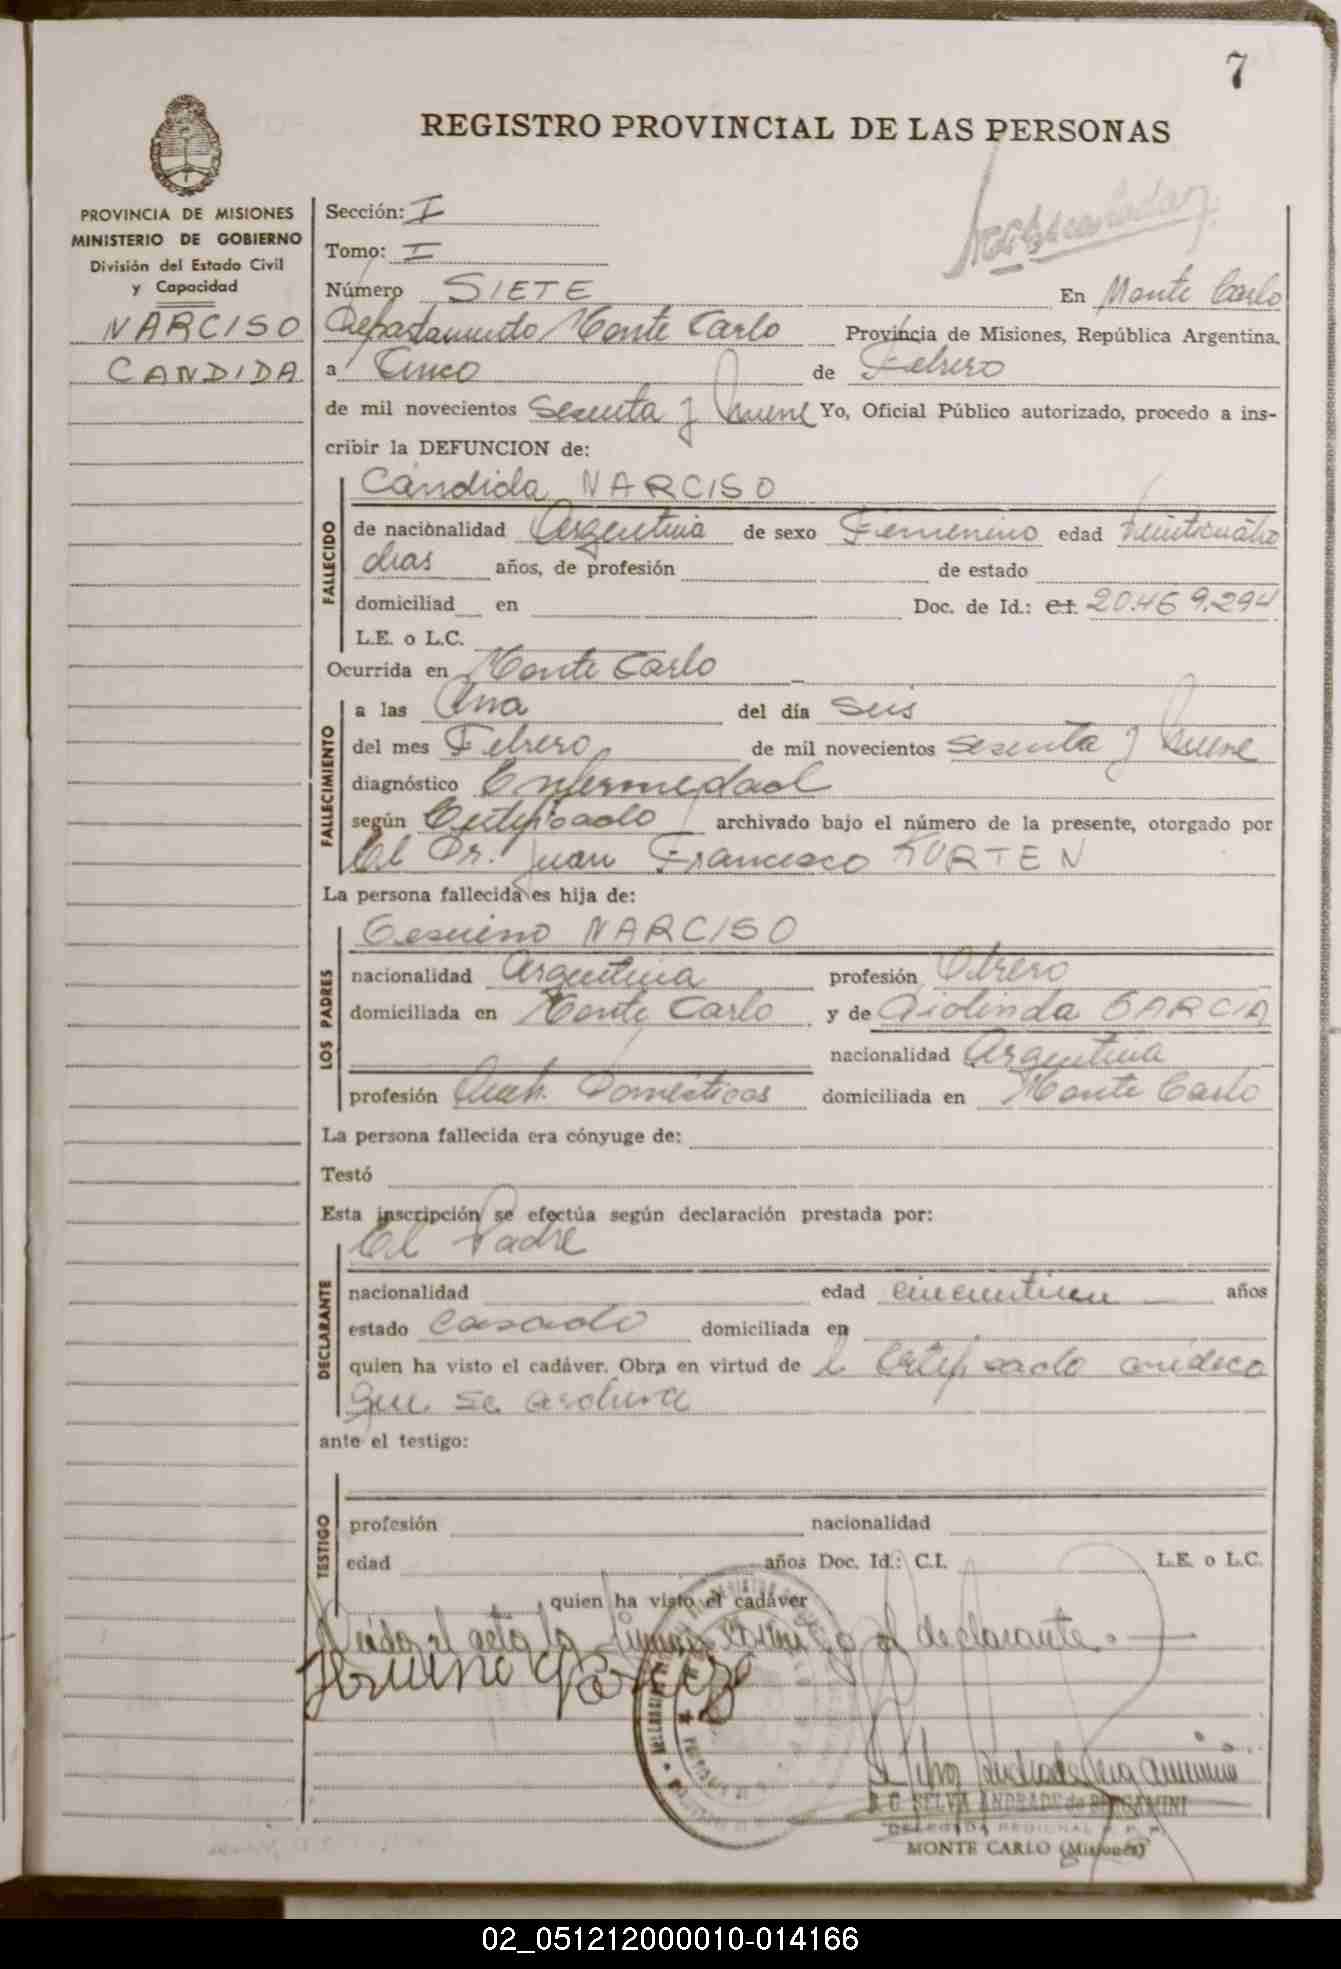 7
REGISTRO PROVINCIAL DE LAS PERSONAS
PROVINCIA DE MISIONES
MINISTERIO DE GOBIERNO
División del Estado Civil
y Capacidad
NARCISO
CANDIDA
Sección: I
Tomo: I
Número SIETE En Monte Carlo
Departamento Monte Carlo Provincia de Misiones, República Argentina,
a Cinco de Febrero
de mil novecientos Sesenta y Nueve Yo, Oficial Público autorizado, procedo a ins-
cribir la DEFUNCION de:
FALLECIDO
Cándida NARCISO
de nacionalidad Argentina de sexo Femenino edad Veinticuatro
dias años, de profesión de estado
domiciliad en Doc. de Id.: C.I. 20.469.294
L.E. o L.C.
Ocurrida en Monte Carlo
FALLECIMIENTO
a las Una del día Seis
del mes Febrero de mil novecientos Sesenta y Nueve
diagnóstico Enfermedad
según Certificado archivado bajo el número de la presente, otorgado por
El Dr. Juan Francisco KURTEN
La persona fallecida es hija de:
LOS PADRES
NARCISO
nacionalidad Argentina profesión Obrero
domiciliada en Monte Carlo y de GARCIA
nacionalidad Argentina
profesión Domésticos domiciliada en Monte Carlo
La persona fallecida era cónyuge de:
Testó
Esta inscripción se efectúa según declaración prestada por:
DECLARANTE
El Padre
nacionalidad edad años
estado Casado domiciliada en
quien ha visto el cadáver. Obra en virtud de l Certificado médico
que se archiva
ante el testigo:
TESTIGO
profesión nacionalidad
edad años Doc. Id.: C.I. L.E. o L.C.
quien ha visto el cadáver
Leida el acta la firma conmigo el declarante.
SELVA ANDRADE de BERGAMINI
DELEGADA REGIONAL R. P. P.
MONTE CARLO (Misiones)
02_051212000010-014166